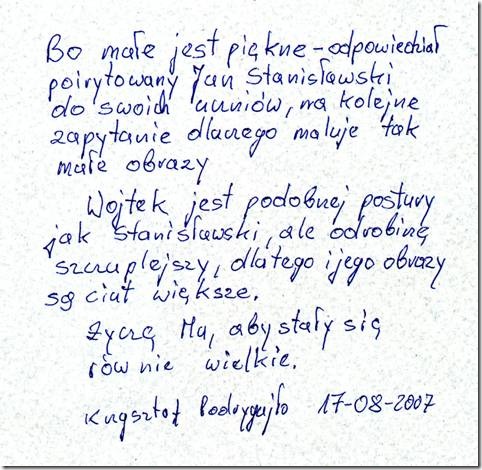 Bo małe jest piękne - odpowiedział
poirytowany Jan Stanisławski
do swoich uczniów, na kolejne
zapytanie dlaczego maluje tak
małe obrazy
Wojtek jest podobnej postury
jak Stanisławski, ale odrobinę
szczuplejszy, dlatego i jego obrazy
są ciut większe.
Życzę Mu, aby stały się
równie wielkie.
Krzysztof 17-08-2007